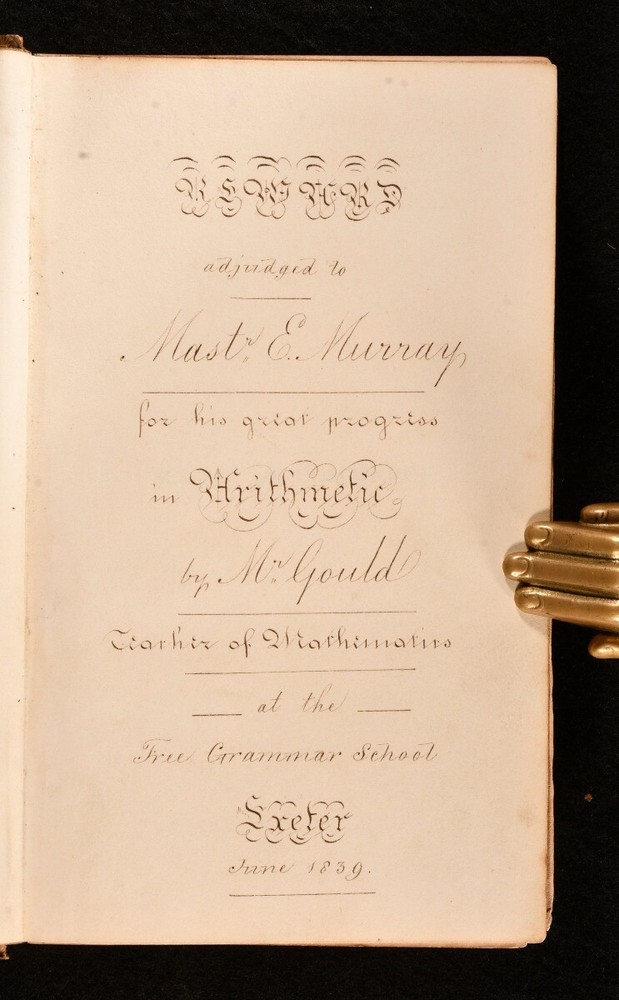 REWARD
adjudged to
Mastr. E. Murray
for his great progress
in Arithmetic
by Mr. Gould
Teacher of Mathematics
at the
Free Grammar School
Exeter
June 1839.